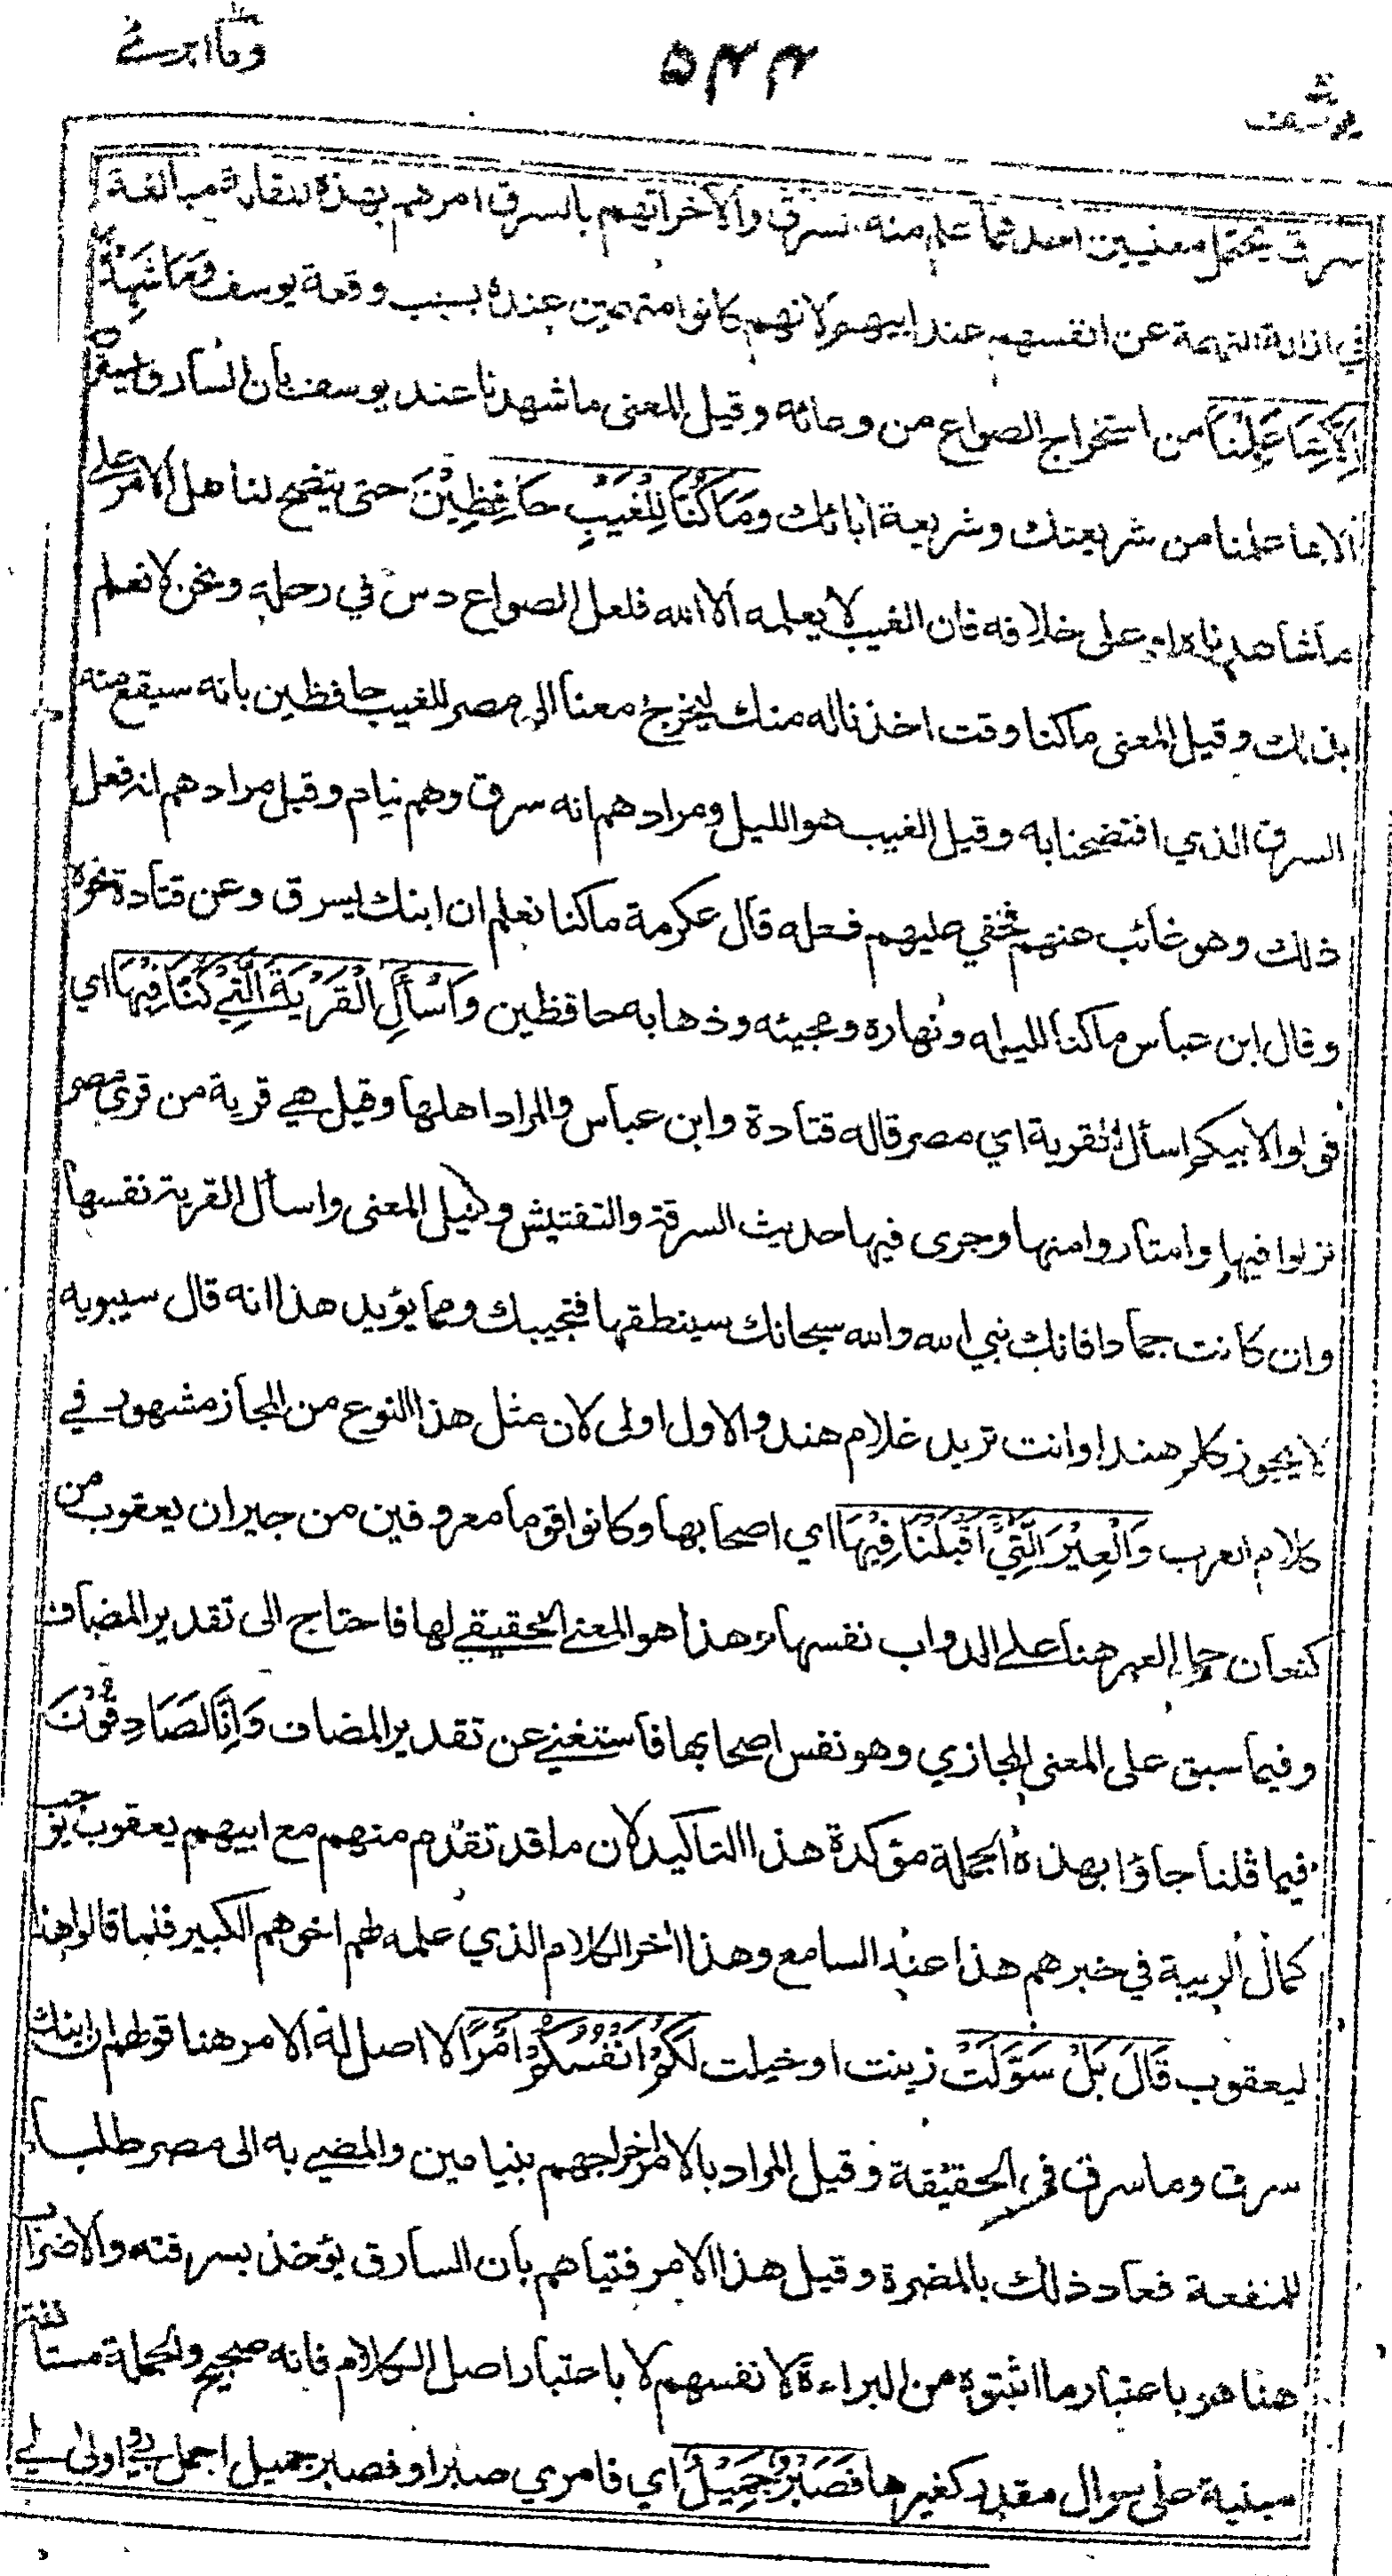 وما ابرئ
۵۴۴
يوسف
سرق يحتمل معنيين احدهما علم منه السرق والاخر اتهم بالسرق امرهم بهذه المقالة مبالغة
في ازالة التهمة عن انفسهم عند ابيهم لانهم كانوا متهمين عنده بسبب وقعة يوسف وَمَا شَهِدْنَا
اِلَّا بِمَا عَلِمْنَا من استخراج الصواع من وعائه وقيل المعنى ما شهدنا عند يوسف بان السارق يسترق
الا بما علمنا من شريعتك وشريعة ابائك وَمَا كُنَّا لِلْغَيْبِ حَافِظِيْنَ حتى يتضح لنا هل الامر على
ما شاهدناه ام على خلافه فان الغيب لا يعلمه الا الله فلعل الصواع دس في رحله ونحن لا نعلم
بذلك وقيل المعنى ما كنا وقت اخذناله منك ليخرج معنا الى مصر للغيب حافظين بانه سيقع منه
السرق الذي افتضحنا به وقيل الغيب هو الليل ومرادهم انه سرق وهم نيام وقيل مرادهم انه فعل
ذلك وهو غائب عنهم فخفي عليهم فعله قال عكرمة ما كنا نعلم ان ابنك يسرق وعن قتادة نحوه
وقال ابن عباس ما كنا لليله ونهاره ومجيئه وذهابه حافظين وَاسْأَلِ الْقَرْيَةَ الَّتِيْ كُنَّا فِيْهَا اي
قولوا لابيكم اسأل القرية اي مصر قاله قتادة وابن عباس والمراد اهلها وقيل هي قرية من قرى مصر
نزلوا فيها وامتاروا منها وجرى فيها حديث السرقة والتفتيش وقيل المعنى واسأل القرية نفسها
وان كانت جمادا فانك نبي الله والله سبحانك سينطقها فتجيبك ومما يؤيد هذا انه قال سيبويه
لا يجوز كلم هندا وانت تريد غلام هند والاول اولى لان مثل هذا النوع من المجاز مشهور في
كلام العرب وَالْعِيْرَ الَّتِيْ اَقْبَلْنَا فِيْهَا اي اصحابها وكانوا قوما معروفين من جيران يعقوب من
كنعان حمل العير هنا على الدواب نفسها وهذا هو المعنى الحقيقي لها فاحتاج الى تقدير المضاف
وفيما سبق على المعنى المجازي وهو نفس اصحابها فاستغنى عن تقدير المضاف وَاِنَّا لَصَادِقُوْنَ
فيما قلنا جاؤا بهذه الجملة مؤكدة هذا التاكيد لان ما قد تقدم منهم مع ابيهم يعقوب يوجب
كمال الريبة في خبرهم هذا عند السامع وهذا اخر الكلام الذي علمه لهم اخوهم الكبير فلما قالوا هذا
ليعقوب قَالَ بَلْ سَوَّلَتْ زينت او خيلت لَكُمْ اَنْفُسُكُمْ اَمْرًا لا اصل له الامر هنا قولهم ان ابنك
سرق وما سرق في الحقيقة وقيل المراد بالامر اخراجهم بنيامين والمضي به الى مصر طلبا
للمنفعة فعاد ذلك بالمضرة وقيل هذا الامر فتياهم بان السارق يؤخذ بسرقته والاضراب
هنا هو باعتبار ما اثبتوه من البراءة لانفسهم لا باعتبار اصل الكلام فانه صحيح والجملة مستانفة
مبنية على سوال مقدر كغيرها فَصَبْرٌ جَمِيْلٌ اي فامري صبر او فصبر جميل اجمل بي واولى لي